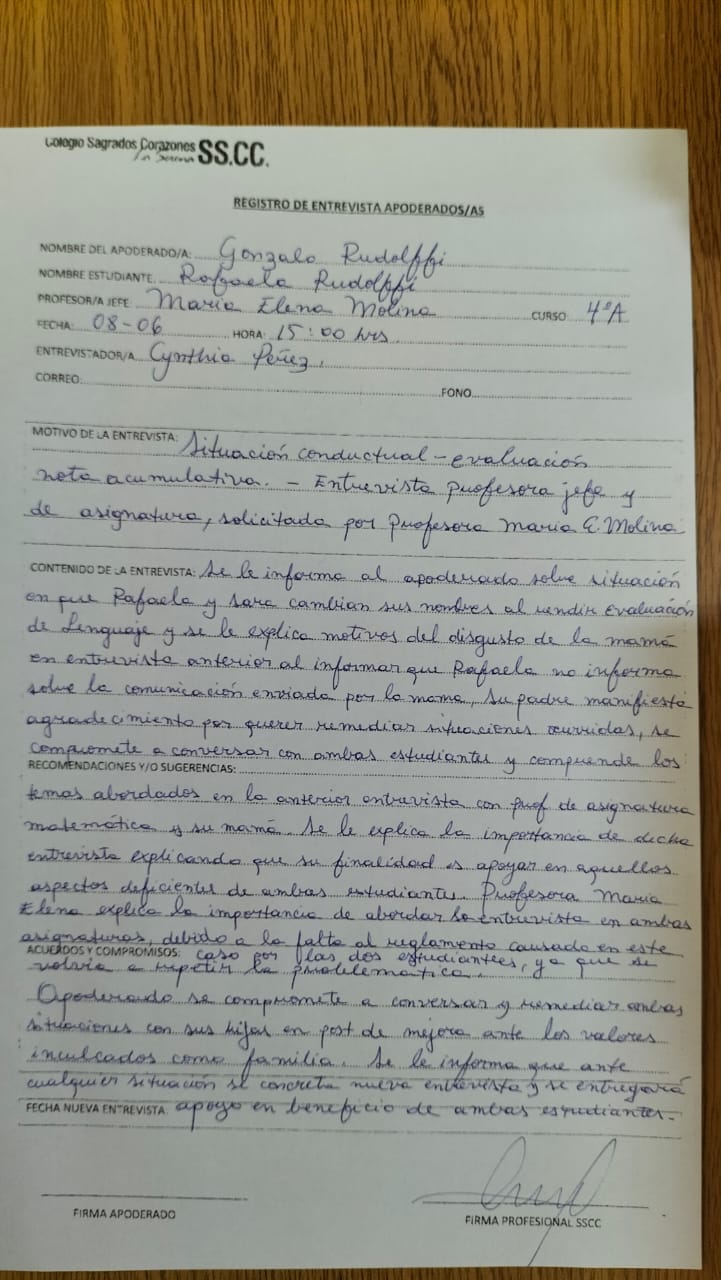 Colegio Sagrados Corazones SS.CC.
La Serena
REGISTRO DE ENTREVISTA APODERADOS/AS
NOMBRE DEL APODERADO/A: Gonzalo Rudolffi
NOMBRE ESTUDIANTE Rafaela Rudolffi
PROFESOR/A JEFE: María Elena Molina CURSO 4°A
FECHA: 08-06 HORA: 15:00 hrs.
ENTREVISTADOR/A Cynthia Peñez.
CORREO: FONO
MOTIVO DE LA ENTREVISTA: Situación conductual - evaluación
nota acumulativa. - Entrevista profesora jefe y
de asignatura, solicitada por Profesora Maria E. Molina
CONTENIDO DE LA ENTREVISTA: Se le informa al apoderado sobre situación
en que Rafaela y Sara cambian sus nombres al rendir evaluación
de Lenguaje y se le explica motivos del disgusto de la mamá
en entrevista anterior al informar que Rafaela no informa
sobre la comunicación enviada por la mama, Su padre manifiesta
agradecimiento por querer remediar situaciones ocurridas, se
compromete a conversar con ambas estudiantes y comprende los
RECOMENDACIONES Y/O SUGERENCIAS:
temas abordados en la anterior entrevista con prof de asignatura
matemática y su mamá. Se le explica la importancia de dicha
entrevista explicando que su finalidad es apoyar en aquellos
aspectos deficientes de ambas estudiantes. Profesora Maria
Elena explica la importancia de abordar la entrevista en ambas
asignaturas, debido a la falta al reglamento causado en este
ACUERDOS Y COMPROMISOS: caso por las dos estudiantes, ya que se
volvía a repetir la problemática.
Apoderado se compromete a conversar y remediar ambas
situaciones con sus hijas en post de mejora ante los valores
inculcados como familia. Se le informa que ante
cualquier situación se concreta nueva entrevista y se entregará
FECHA NUEVA ENTREVISTA: apoyo en beneficio de ambas estudiantes.
FIRMA APODERADO FIRMA PROFESIONAL SSCC